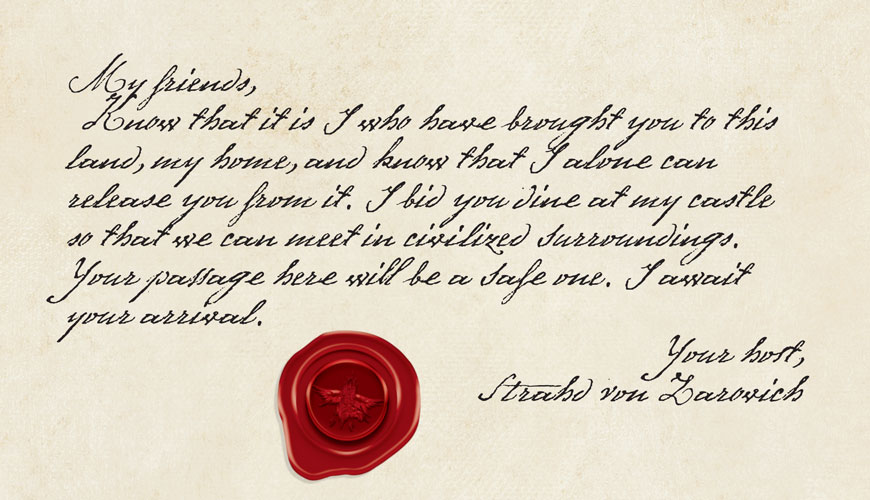 My friends,
Know that it is I who have brought you to this
land, my home, and know that I alone can
release you from it. I bid you dine at my castle
so that we can meet in civilized surroundings.
Your passage here will be a safe one. I await
your arrival.
Your host,
Strahd von Zarovich